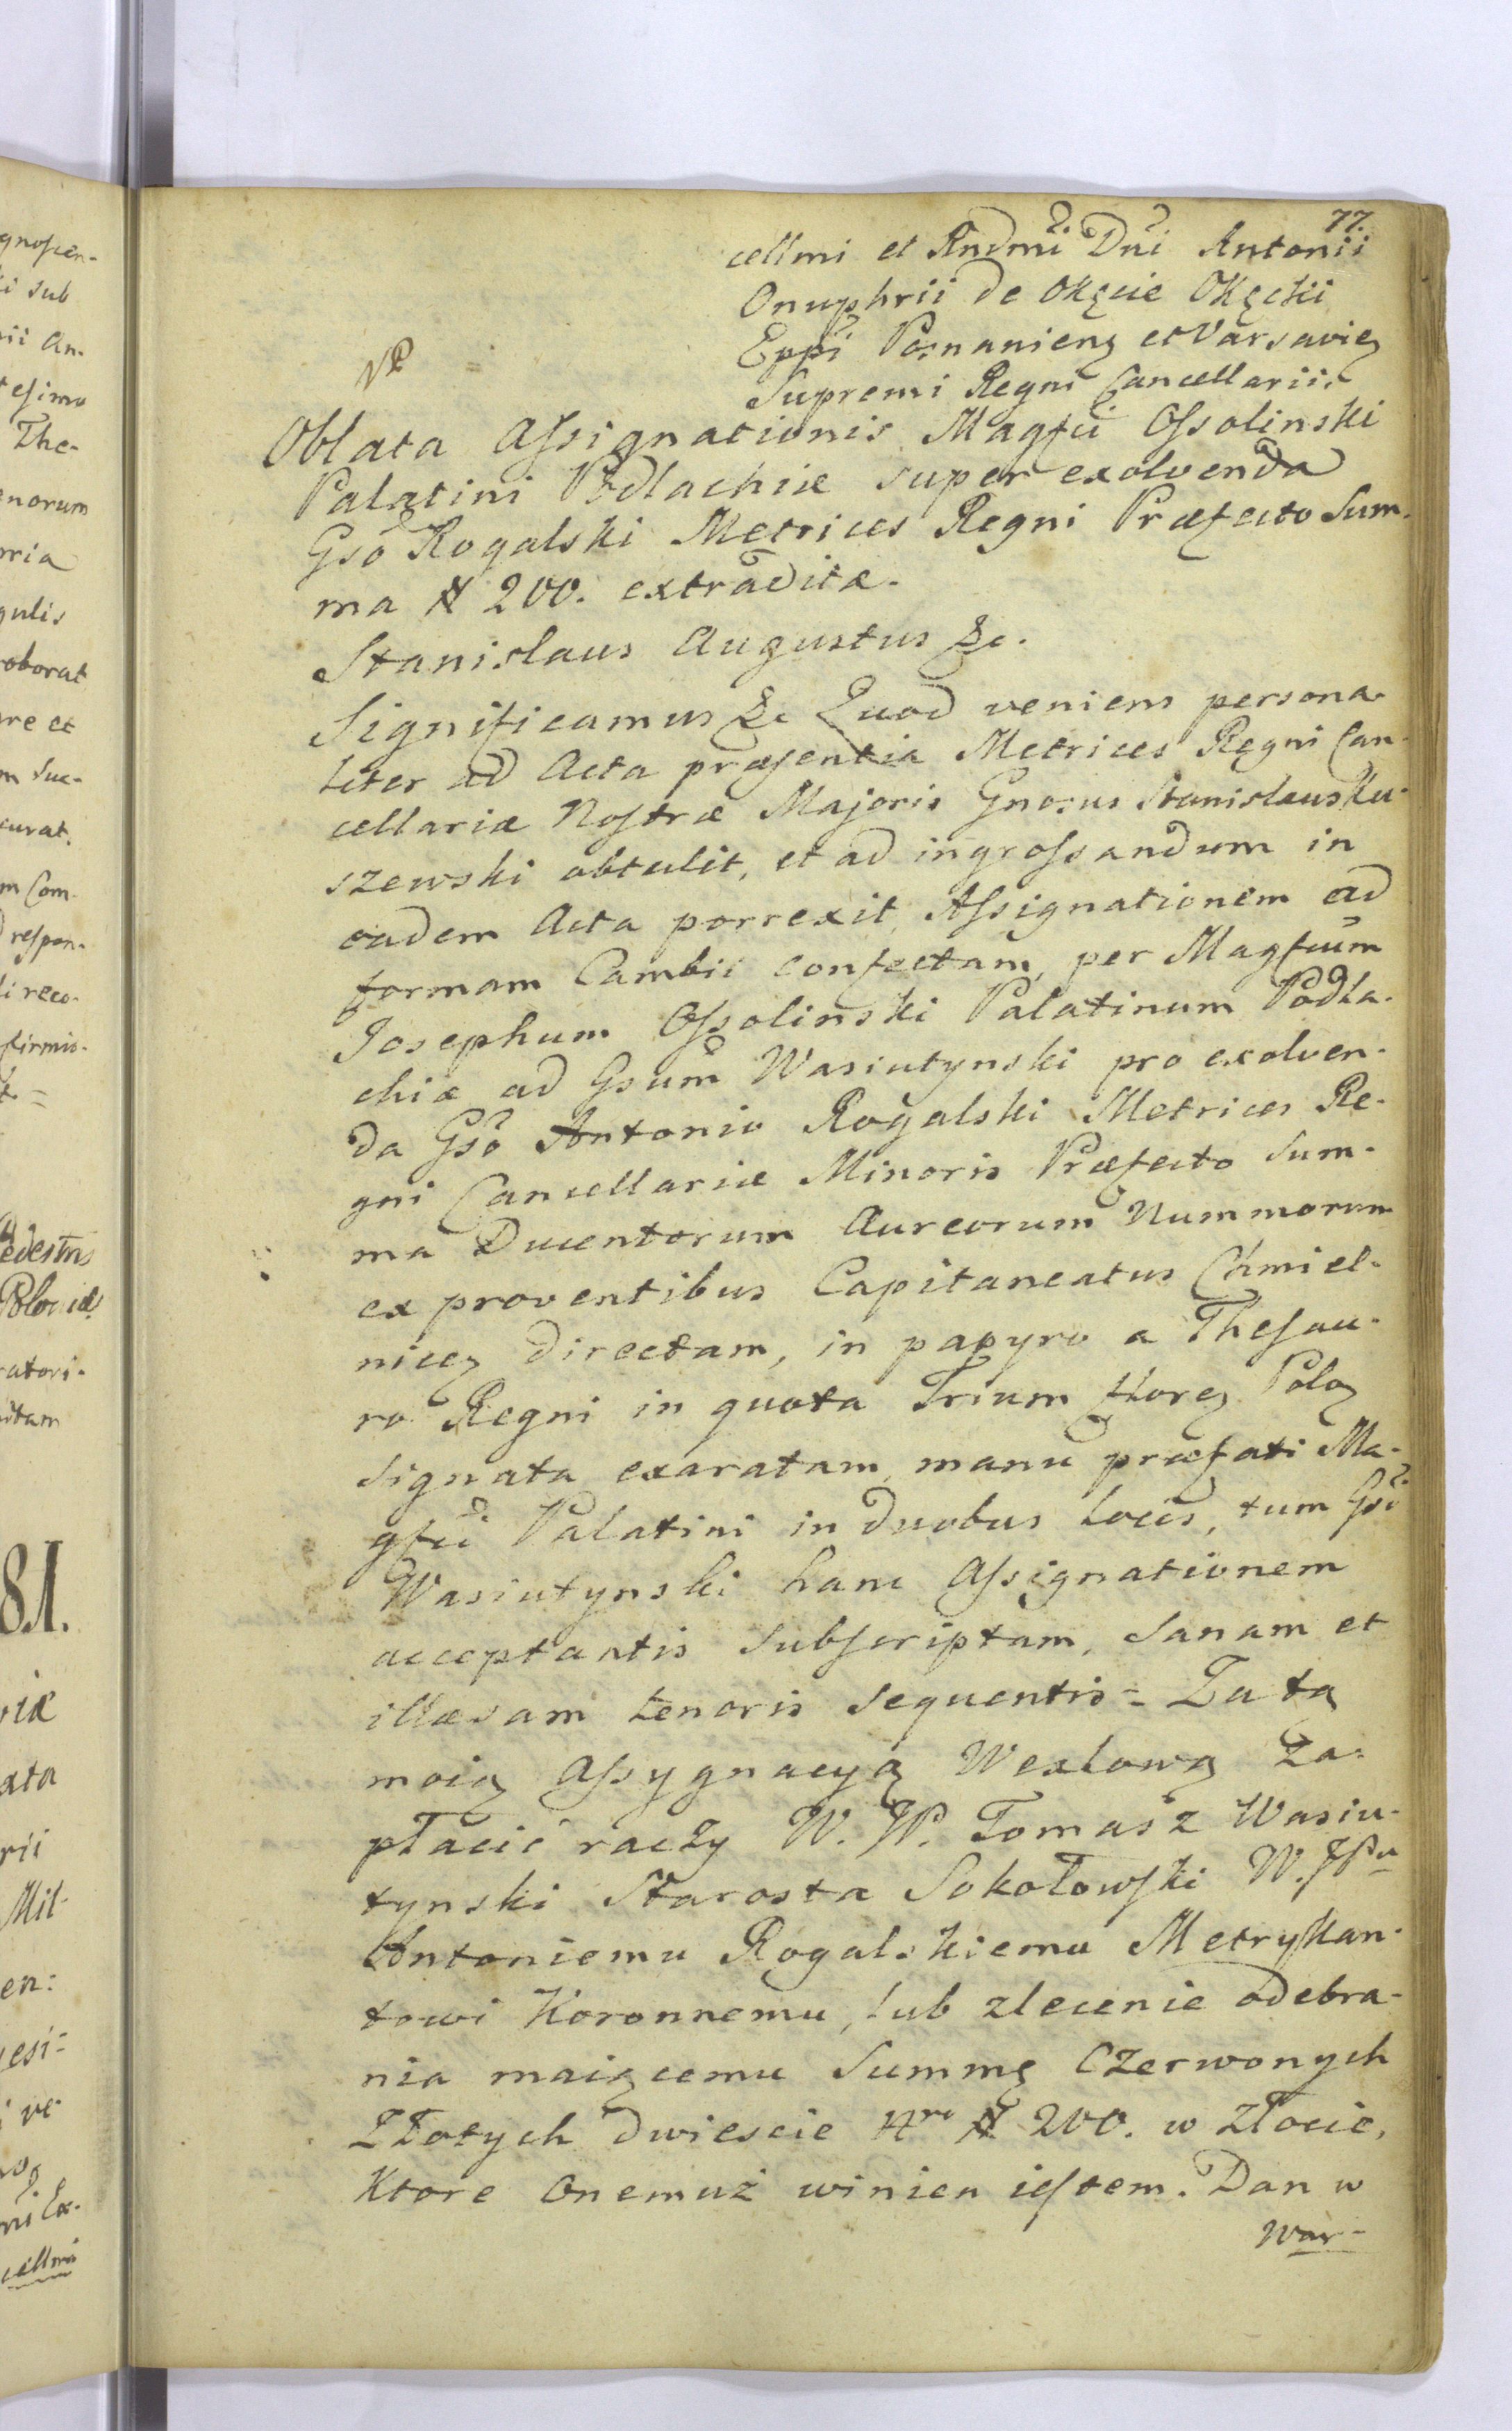 77.
cellmi et Rndmi Dni Antonii
Onuphrii de Okęcie Okęcki
Eppi Posnanieng et Varsavieg
Supremi Regni Cancellarii.
Oblata Assignationis Magfci Ossolinski
Palatini Podlachiæ super exolvenda
Gso Rogalski Metrices Regni Præfecto Sum-
ma # 200. extraditæ.
Stanislaus Augustus &c.
Significamus &c Quod veniens persona-
liter ad Acta præsentia Metrices Regni Can-
cellariæ Nostræ Majoris Gnosus Stanislaus Ku-
szewski obtulit, et ad ingrossandum in
eadem Acta porrexit, Assignationem ad
formam Cambii confectam, per Magfcum
Josephum Ossolinski Palatinum Podla-
chiæ ad Gsum Wasiutynski pro exolven-
da Gso Antonio Rogalski Metrices Re-
gni Cancellariæ Minoris Præfecto Sum-
ma Ducentorum Aureorum Nummorum
ex proventibus Capitaneatus Chmiel-
niceg directam, in papyro a Thesau-
ro Regni in quota Trium floreg Polog
signata exaratam, manu præfati Ma-
gfci Palatini in duobus locis, tum Gsi
Wasiutynski hanc Assignationem
acceptantis subscriptam, sanam et
illæsam tenoris sequentis = Za tą
moią Assygnacyą Wexlową za-
płacić raczy W. JP. Tomasz Wasiu-
tynski Starosta Sokołowski W. JPu
Antoniemu Rogalskiemu Metrykan-
towi Koronnemu, lub zlecenie odebra-
nia maiącemu Summę Czerwonych
Złotych dwiescie Nro # 200. w złocie,
Ktore Onemuż winien iestem. Dan w
War-